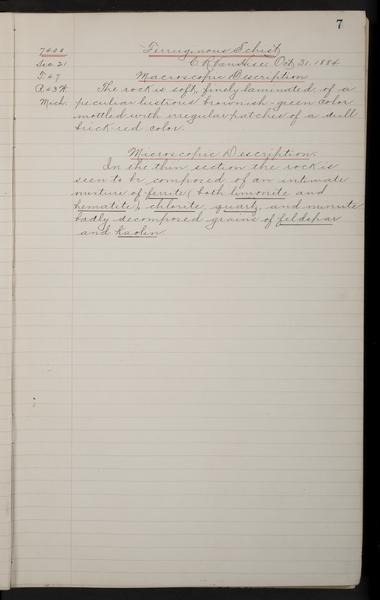 7
7400 Ferruginous Schist
Sec. 21 C.R. Van Hise Oct, 31. 1884
T. 47 Macroscopic Description
R. 43 W. The rock is soft, finely laminated, of a
Mich. peculiar lustrous brownish-green color
mottled with irregular patches of a dull
brick red color.
Microscopic Description.
In the thin section the rock is
seen to be composed of an intimate
mixture of ferrite (both limonite and
hematite), chlorite, quartz, and minute
badly decomposed grains of feldspar
and kaolin.